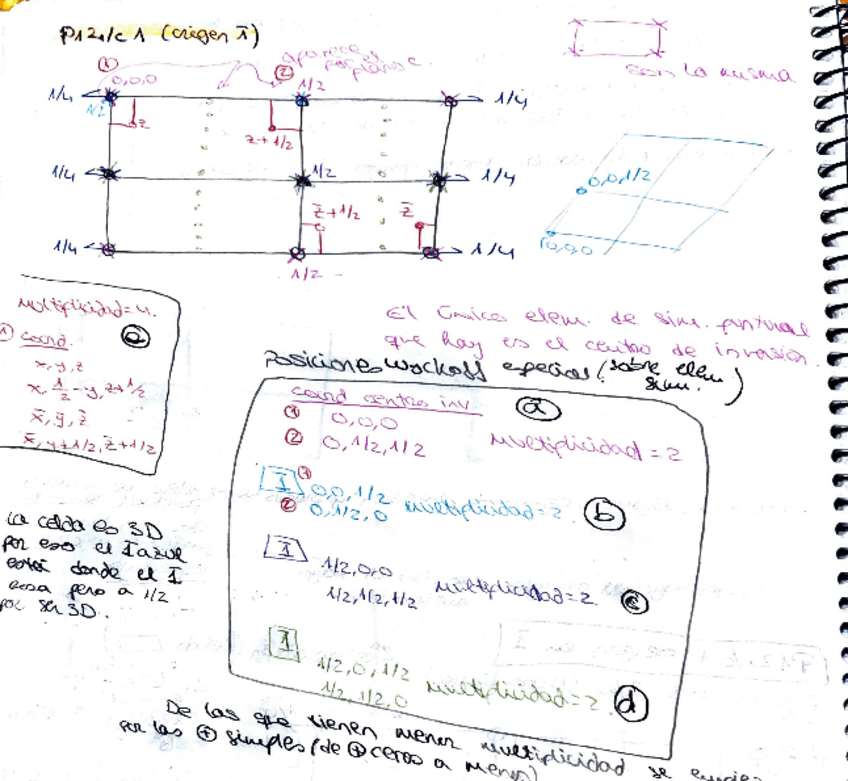 P12₁/c 1 (origen 1̄)
aparece x
por plano c.
son la misma
① ②
0,0,0 1/2
1/4 1/4
1/2
z z+1/2
1/4 1/2 1/4
z̄+1/2 z̄
1/4 1/2 1/4
0,0,1/2
0,0,0
Multiplicidad=4.
① coord. ⓔ
x,y,z
x,1/2-y,z+1/2
x̄,ȳ,z̄
x̄,y+1/2,z̄+1/2
El único elem. de sim. puntual
que hay es el centro de inversión.
Posiciones Wyckoff especias (sobre elem
sim.)
coord centro inv ⓐ
① 0,0,0
② 0,1/2,1/2 Multiplicidad=2
1̄ ① 0,0,1/2 multiplicidad=2 ⓑ
② 0,1/2,0
1̄ 1/2,0,0 multiplicidad=2 ⓒ
1/2,1/2,1/2
1̄ 1/2,0,1/2 multiplicidad=2 ⓓ
1/2,1/2,0
La celda es 3D
por eso el 1̄ azul
está donde el 1̄
rosa pero a 1/2
por ser 3D.
De las que tienen menor multiplicidad se
por las ⊕ simples (de ⊕ ceros a menos)